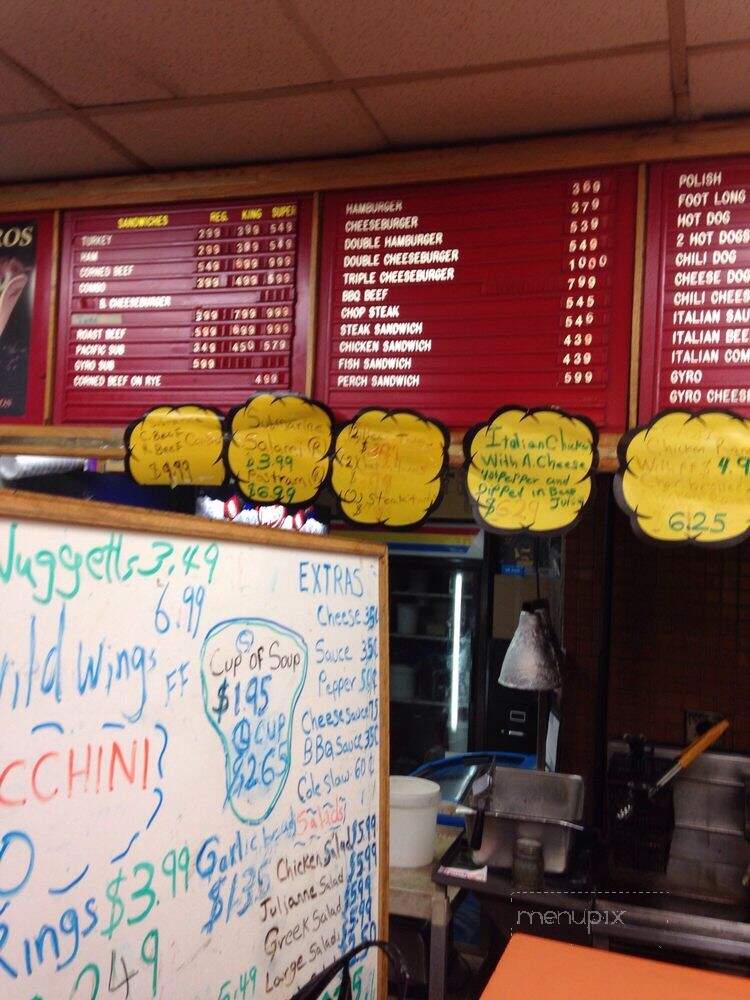 ROS
SANDWICHES REG. KING SUPER
TURKEY 299 399 549
HAM 299 399 549
CORNED BEEF 549 699 999
COMBO 399 499 599
& CHEESEBURGER
299 799 999
ROAST BEEF 599 699 999
PACIFIC SUB 349 450 579
GYRO SUB 599
CORNED BEEF ON RYE 499
HAMBURGER 369
CHEESEBURGER 379
DOUBLE HAMBURGER 539
DOUBLE CHEESEBURGER 549
TRIPLE CHEESEBURGER 1000
BBQ BEEF 799
CHOP STEAK 545
STEAK SANDWICH 546
CHICKEN SANDWICH 439
FISH SANDWICH 439
PERCH SANDWICH 599
POLISH
FOOT LONG
HOT DOG
2 HOT DOGS
CHILI DOG
CHEESE DOG
CHILI CHEES
ITALIAN SAU
ITALIAN BEE
ITALIAN COM
GYRO
GYRO CHEES
C. Beef
R. Beef
$9.99
Submarine
Salami (R)
$3.99
Pastrami (R)
$6.99
Italian Chicken
With A. Cheese
Hot Pepper and
Dipped in Beef
Juice
$6.29
Chicken
With FF $4.9
625
Nuggetts 3.49
6.99
Wild Wings FF
CCHINI
$3.99
Kings
249
5.49
Cup of Soup
$1.95
Cup
$2.65
Garlic bread
$1.35
EXTRAS
Cheese 35¢
Sauce 35¢
Pepper 50¢
Cheese sauce 75
BBQ Sauce 35¢
Cole Slaw 60¢
Salads
Chicken Salad $5.99
Julianne Salad $5.99
Greek Salad $5.99
Large Salad
menupix